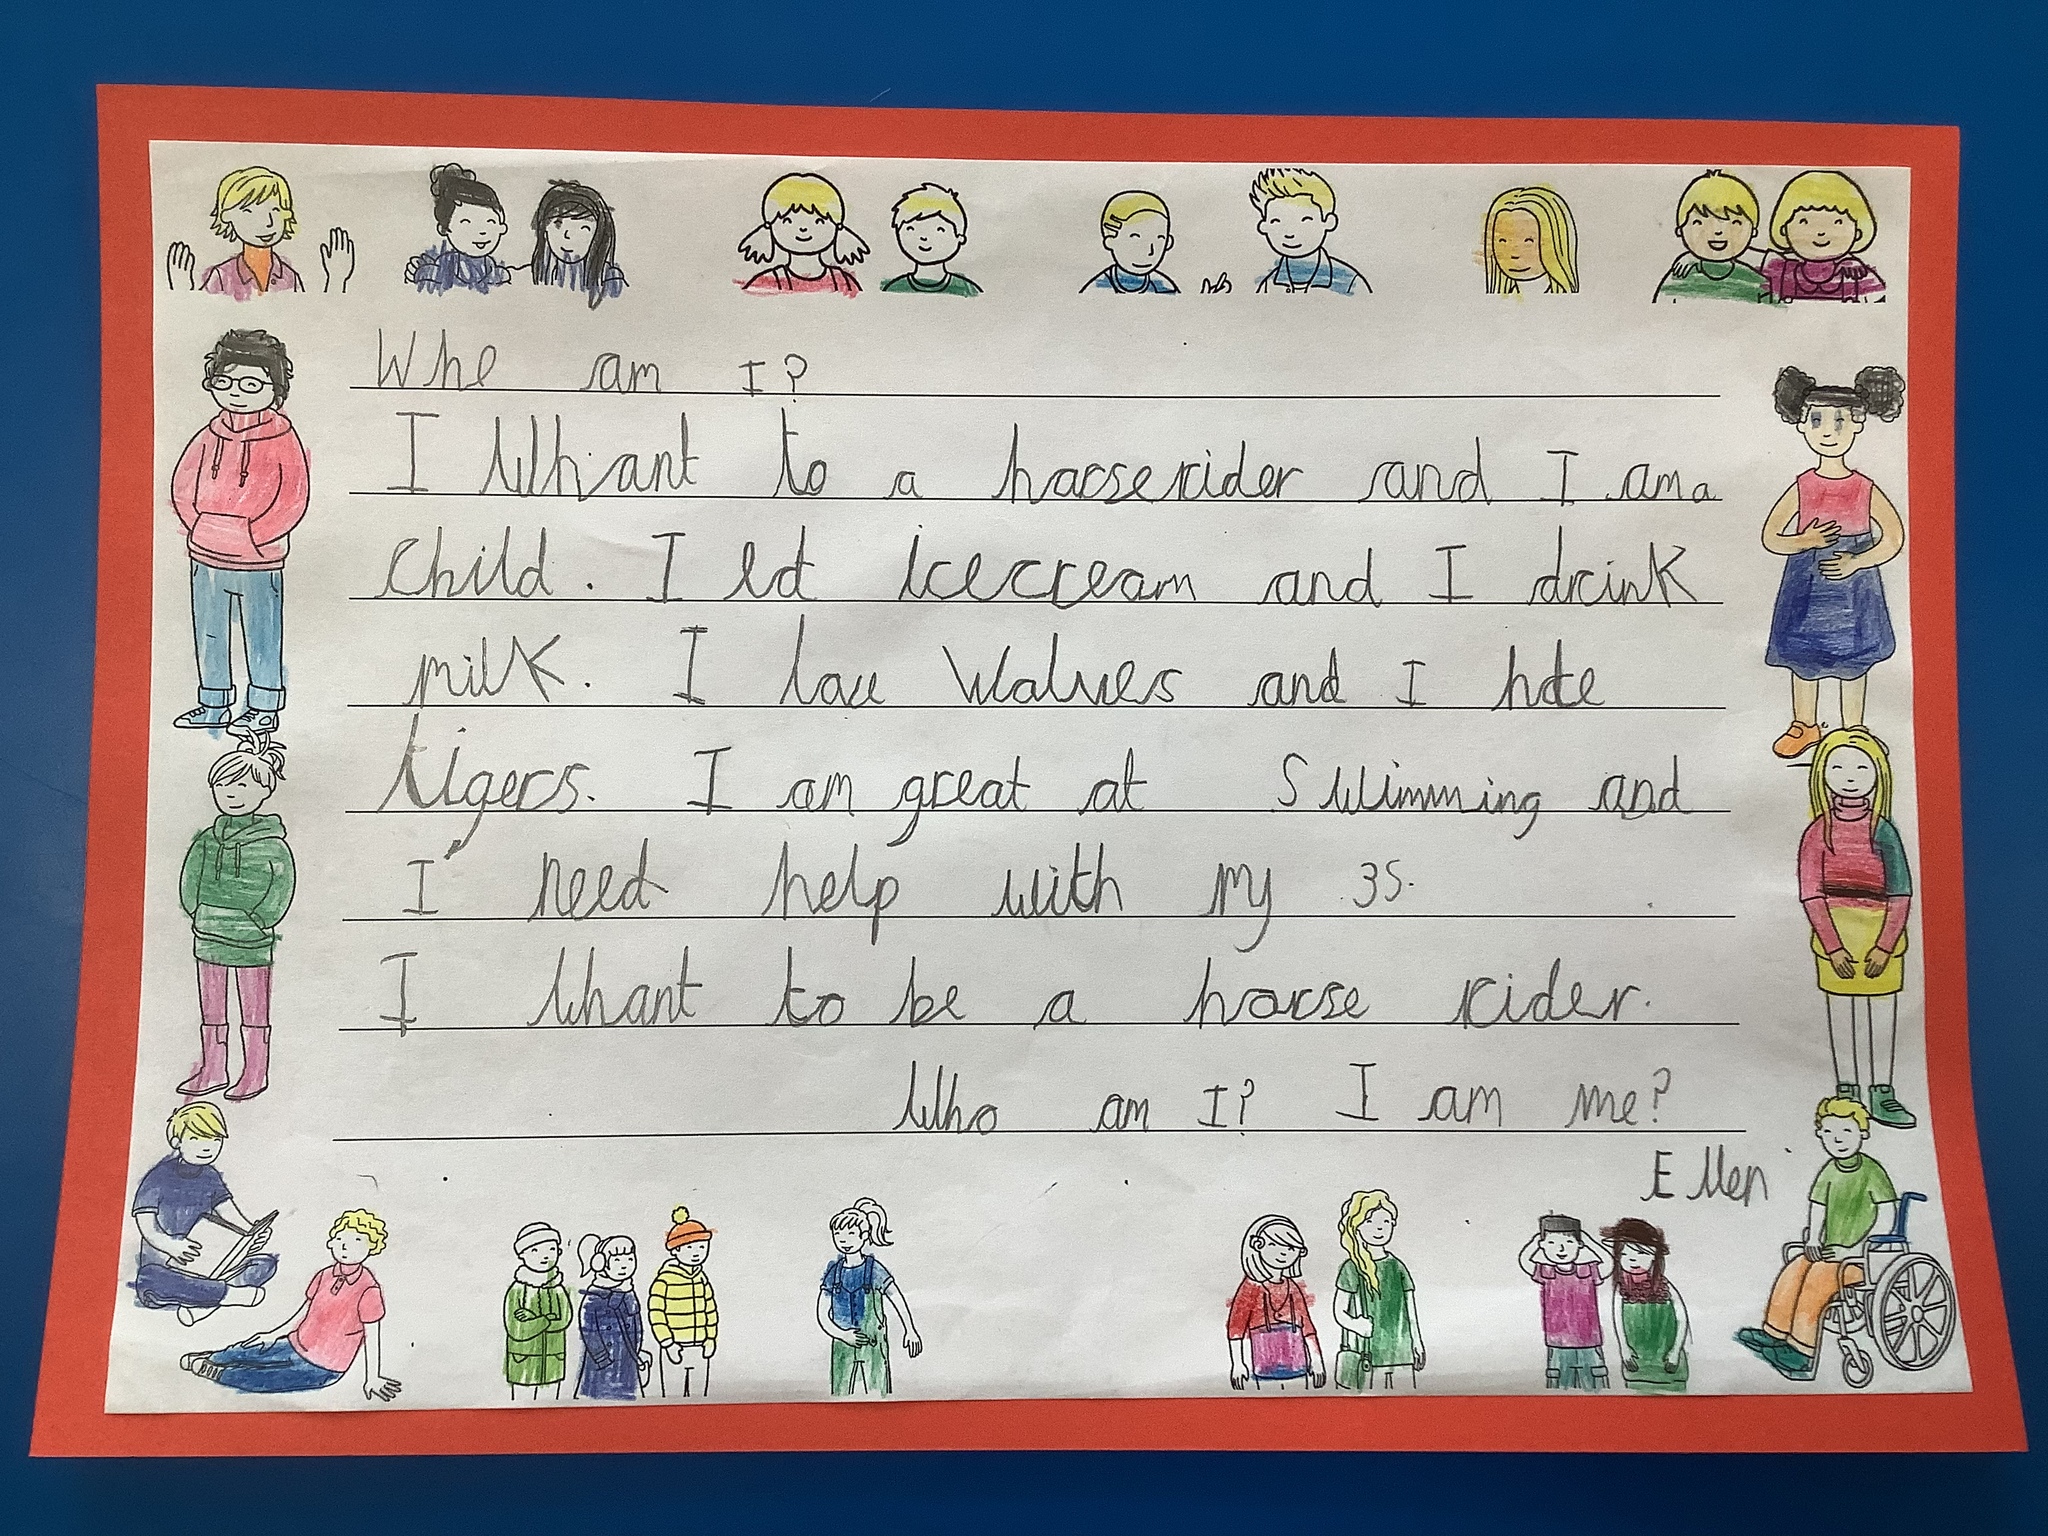 Who am I?
I Whant to a horserider and I am a
child. I et icecream and I drink
milk. I love Wolves and I hate
tigers. I am great at Swimming and
I need help with my 3s.
I Whant to be a horse rider.
Who am I? I am me?
Ellen